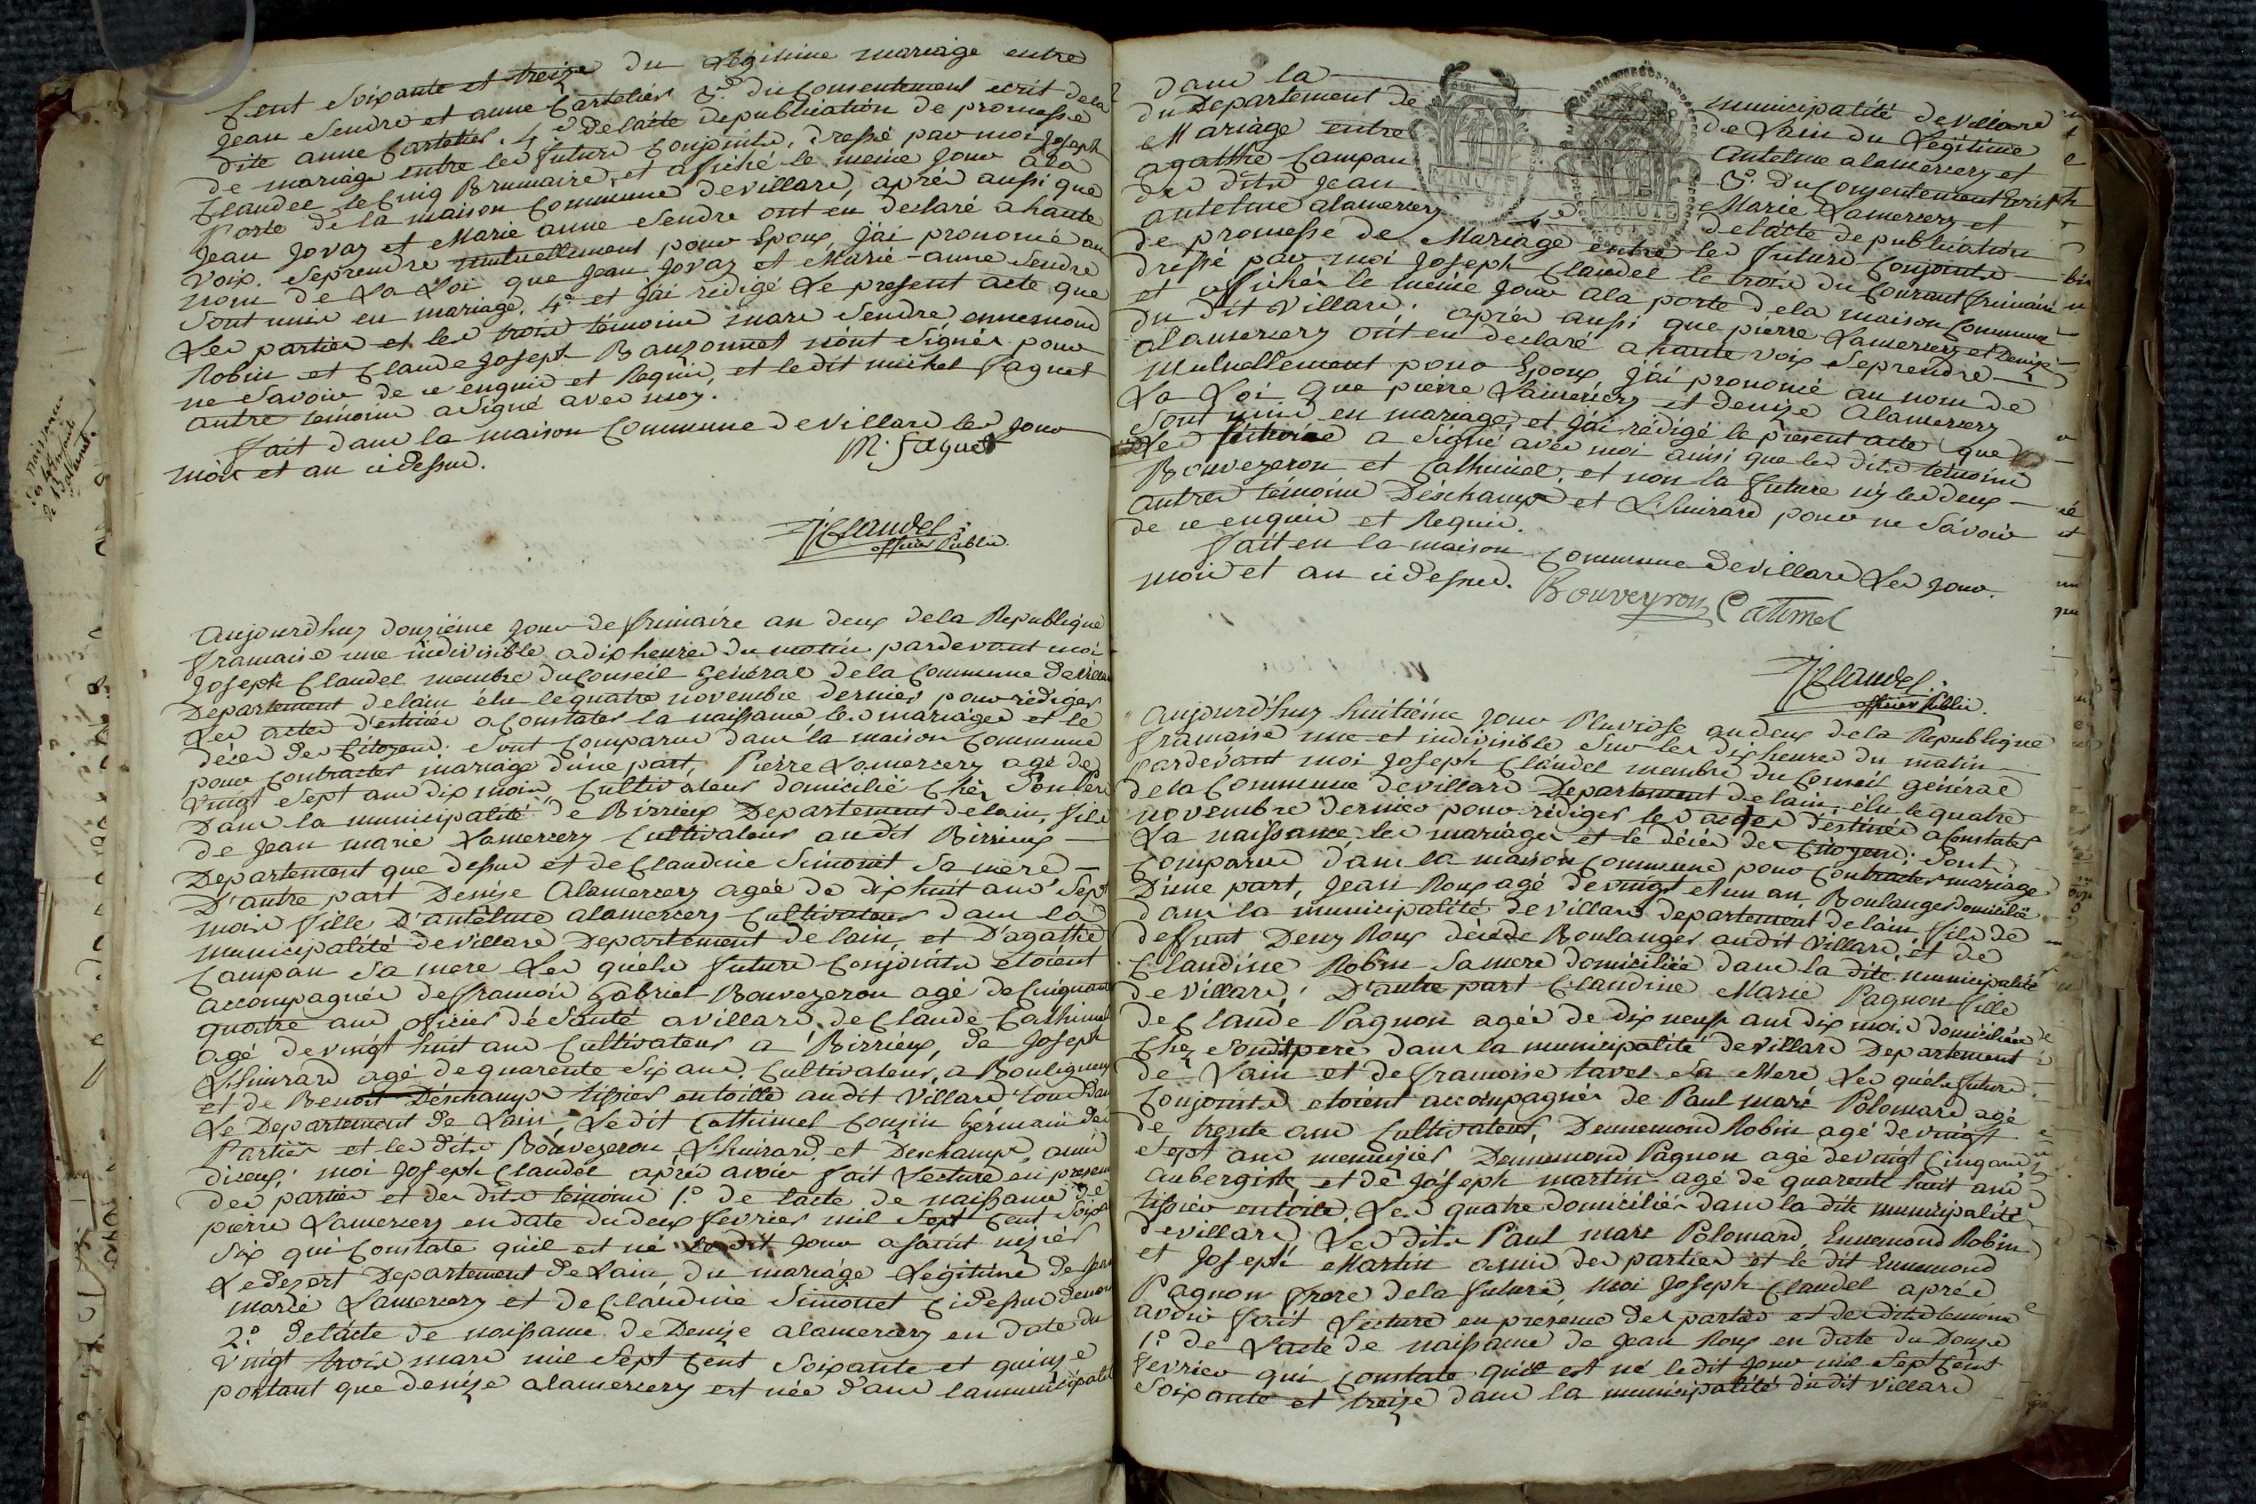 Cent soixante et treize du Légitime mariage entre
Jean Sendre et anne Cartelier 3.º du Consentement ecrit dela
dite anne Cartelier. 4.º de lácte depublication de promesse
de mariage entre les futurs Conjoints, dressé par moi Joseph
Claudel le Cinq Brumaire, et affiché le meme Jour ala
Porte de la maison Commune devillars, aprés aussi que
Jean Jovaz et Marie anne Sendre ont en declaré a haute
voix. Seprendre mutuellement pour Epoux, J'ai prononcé au
nom de La Loi que Jean Jovaz et Marie-anne Sendre
Sont unis en mariage. 4º et J'ai rédigé Le present acte que
Les parties et les trois témoins marc Sendre ennemond
Robin et Claude Joseph Bauzonnet n'ont Signés pour
ne Savoir de ce enquis et Requis, et ledit michel faguet
autre temoin a Signé avec moy.
Fait dans la maison Commune devillars les Jour
mois et an ci dessus. M. faguet
J. Claudel
officier Public
Aujourd'huy douziéme Jour de frimaire an deux dela République
francaise une indivisible a dix heures du matin pardevant moi
Joseph Claudel membre du Conseil Général dela Commune de
Departement delain élu le quatre novembre dernier pour rédiger
Les actes destinés a Constater la naissance les mariages et le
décés des Citoyens: Sont Comparus dans la maison Commune
pour Contracter mariage d'une part, Pierre Lamercery agé de
Vingt Sept ans dix mois Cultivateur domicilié Chés Son Pere
Dans la municipalité de Birrieux Departement delain, fils
de Jean marie Lamercery Cultivateur audit Birrieux
Departement que dessus et de Claudine Simonet Sa mere
D'autre part Denise Alamercery agée de dix huit ans Sept
mois fille D'antelme alamercery Cultivateur dans la
municipalité devillars Departement de lain, et D'agathe
Campan Sa mere Les quels futurs Conjoints étoient
accompagnés de francois Gabriel Bouvezeron agé de Cinquante
quatre ans officier dé Santé avillars, de Claude Cathimel
agé devingt huit ans Cultivateur a Birrieux, de Joseph
Lhuirard agé de quarente Six ans Cultivateur, a Bouligneux
et de Benoit Déschamps tissier entoille audit Villars tous dans
Le Departement de Lain, Ledit Cathimel Cousin Gérmain des
Parties et les dits Bouvezeron, Lhuirard et Deschamps, amis
diceux; moi Joseph Claudel aprés avoir fait Lecture en presence
des parties et des dits témoins 1.º de lacte de naissance de
pierre Lamercery en date du deux fevrier mil Sept Cent Soixante
Six qui Constate qu'il est né ledit Jour a Saint nizier
Ledezert Departement de Lain, du mariage Légitime de Jean
marie Lamercery et de Claudine Simonet Cidessus denommés
2.º delácte de naissance de Denize alamercery en date du
Vingt trois mars mil Sept Cent Soixante et quinze
portant que denize alamercery est née dans lamunicipalité
dans la municipalité devillars
du Departement de de Lain du Légitime
Mariage entre Antelme alamercery et
agatthe Campan 3.º du Consentement Ecrit
des dits Jean Marie Lamercery et
antelme alamercery 4.º delácte depublication
de promesse de Mariage entre les futurs Conjoints
dréssé par moi Joseph Claudel le trois du Courant frimaire
et affichés le méme Jour ala porte dela maison Commune
du dit Villars, aprés aussi que pierre Lamercery et Denize
alamercery ont en declaré a haute voix Seprendre
mutuellement pour Epoux, J'ai prononcé au nom de
La Loi que pierre Lamercery et denize Alamercery
Sont unis en mariage, et J'ai rédigé le present acte que
Les a Signé avec moi ainsi que les dits témoins
Bouvezeron et Cathimel, et non la future ny les deux
autres témoins Déschamps et Lhuirard pour ne Savoir
de ce enquis et Requis.
Fait en la maison Commune devillars Les Jour
mois et an ci dessus. Bouveyron Catimel
J. Claudel
officier Public
Aujourd'huy huitiéme Jour Pluviose an deux dela Republique
francaise une et indivisible Sur les dix heures du matin
Pardévant moi Joseph Claudel membre du Conseil général
dela Commune devillars Departement delain, élu lequatre
novembre dernier pour rédiger les actes déstinés a Constater
La naissance, les mariages et le décés des Citoyens: Sont
Comparus dans la maison Commune pour Contracter mariage
D'une part, Jean Roux agé devingt et un an Boulanger domicilié
dans la municipalité devillars departement delain fils de
deffunt Deny Roux décédé Boulanger audit Villars, et de
Claudine Robin Samere domiciliée dans la dite municipalité
de Villars; D'autre part Claudine Marie Pagnon fille
de Claude Pagnon agée de dix neuf ans dix mois domiciliée
Chez Sondit pere dans la municipalité devillars Departement
de Lain et de francoise tavel Sa Mere Les quéls futurs
Conjoints etoient accompagnés de Paul marc Polomard agé
de trente ans Cultivateur, Dennemond Robin agé devingt
Sept ans menuizier Dennemond Pagnon agé devingt Cinq ans
aubergiste et de Joseph martin agé de quarente huit ans
tissier entoile. Les quatre domiciliés dans la dite municipalité
devillars Les dits Paul marc Polomard, Ennemond Robin
et Joseph Martin amis des parties et le dit Ennemond
Pagnon frere dela future, moi Joseph Claudel aprés
avoir fait Lecture en presence des parties et des dits temoins
1.º de Lacte de naissance de Jean Roux en date du Douze
fevrier qui Constate qu'il est né ledit Jour mil Sept Cent
Soixante et treize dans la municipalité dudit Villars